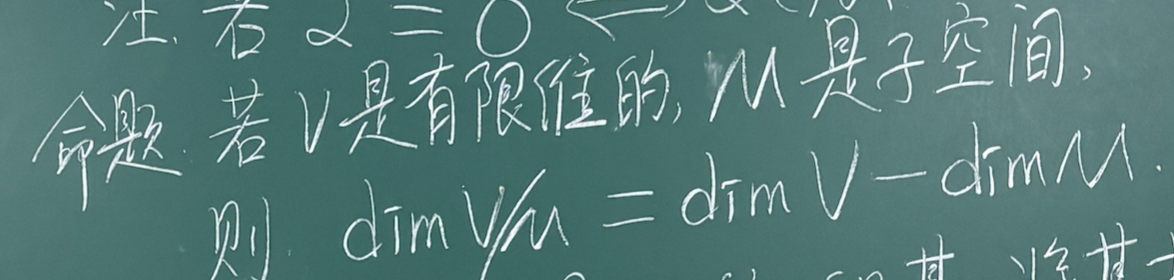 注. 若 α = 0 ⟺
命题. 若 V 是有限维的, M 是子空间,
则. dim V/M = dim V - dim M.
基 将基